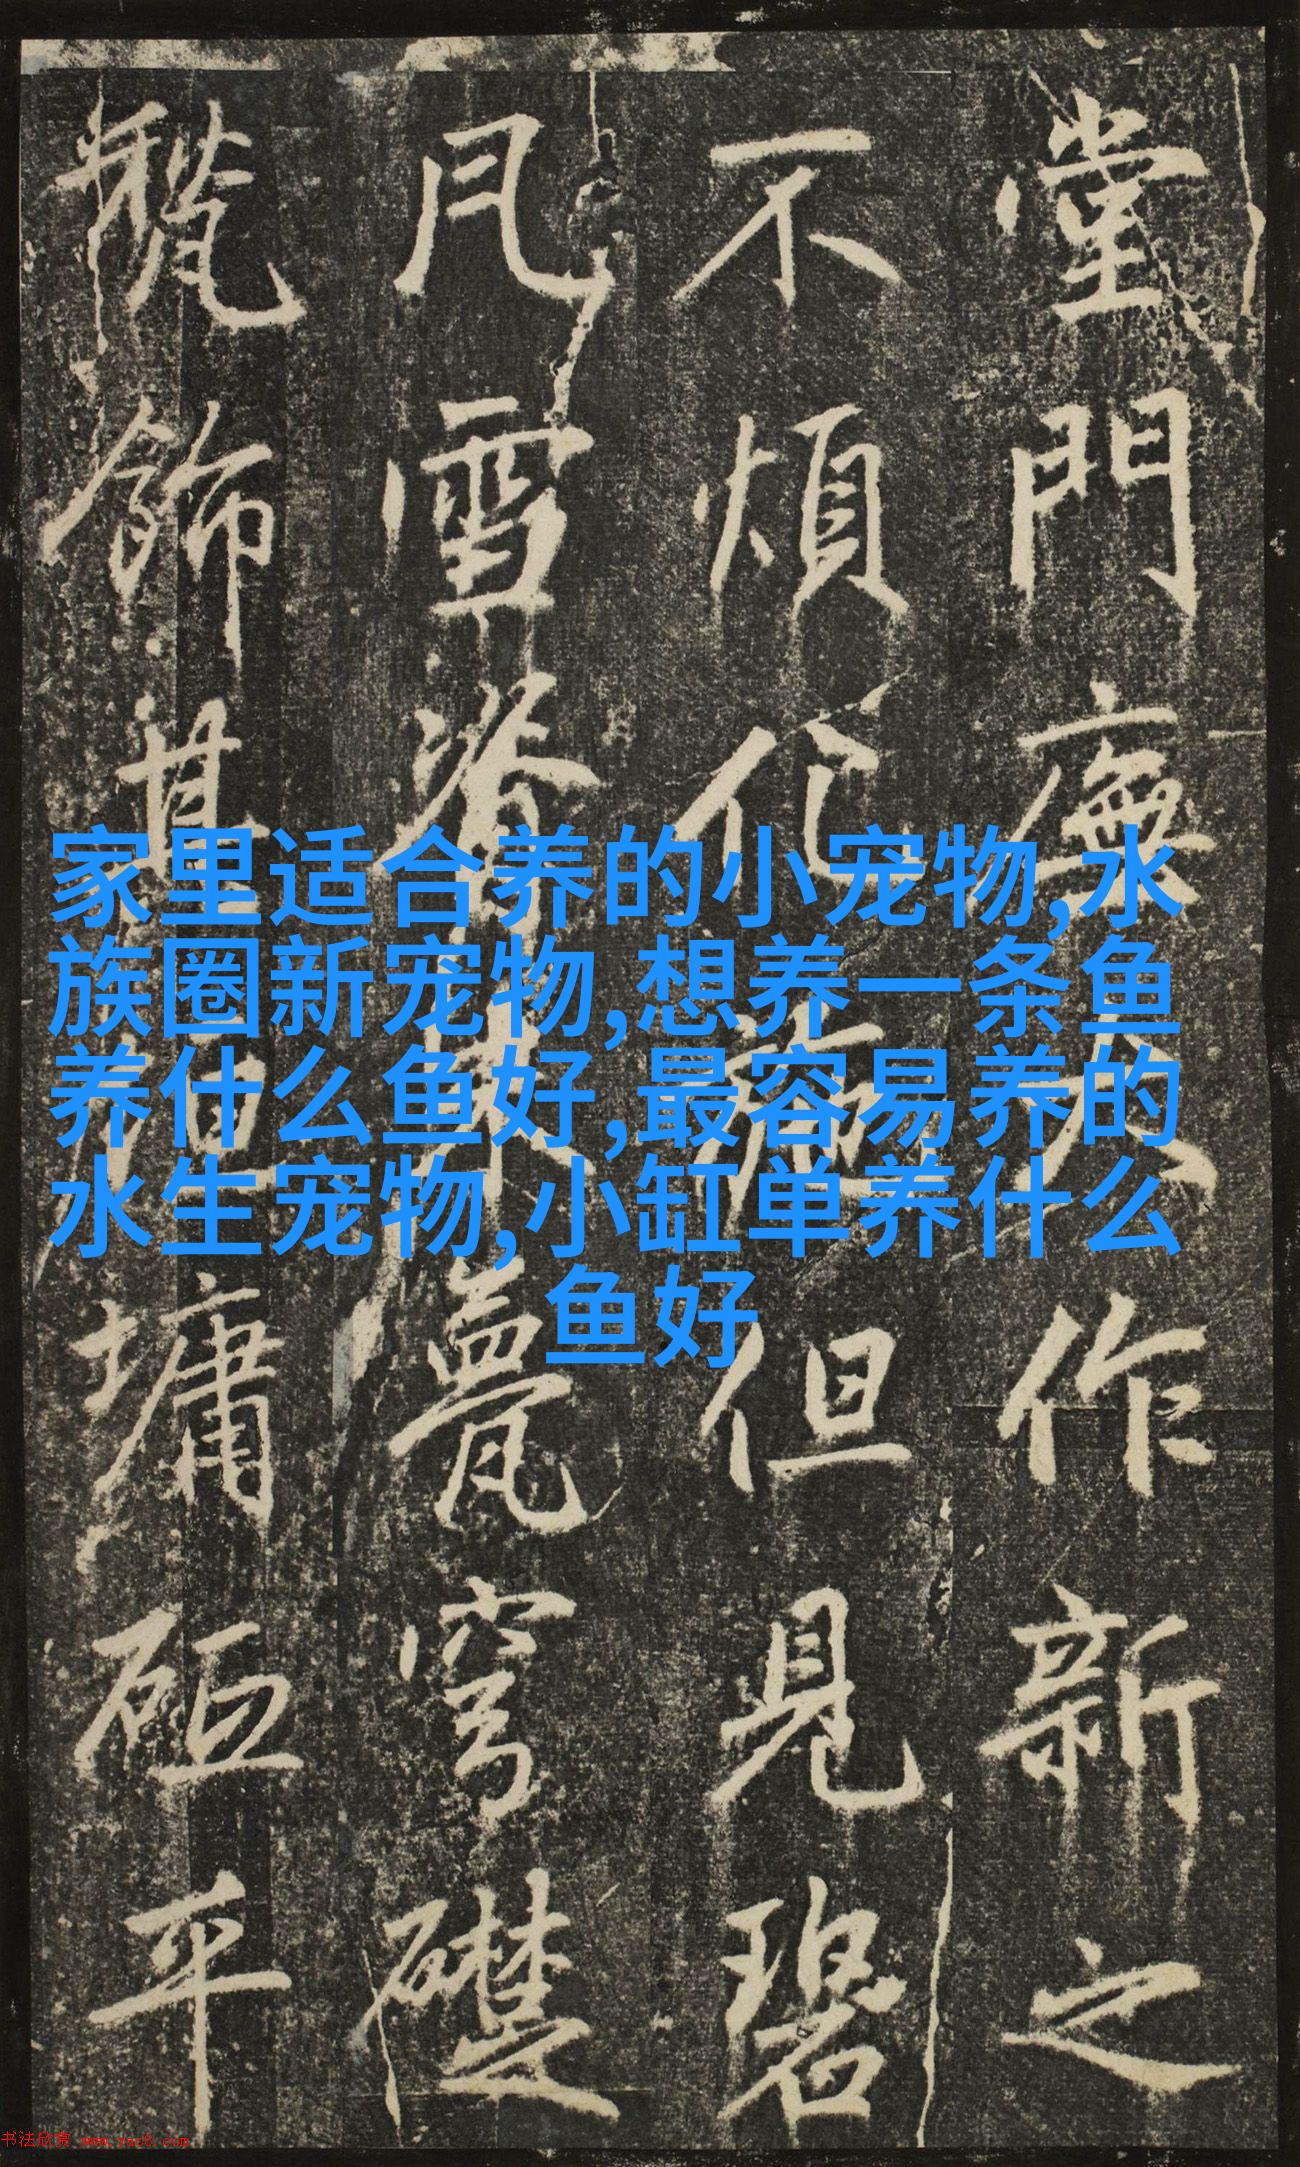 堂門廡大作新之
不煩化施但見碧
甍穹礎
飾其垣墉砥平
家里适合养的小宠物,水
族圈新宠物,想养一条鱼
养什么鱼好,最容易养的
水生宠物,小缸单养什么
鱼好
书法欣赏 www.yac8.com